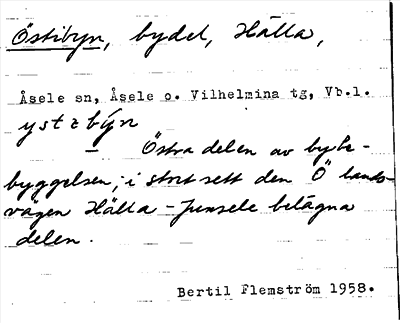 Östibyn, bydel, Hälla,
Åsele sn, Åsele o. Vilhelmina tg, Vb.l.
Östra delen av bybe-
byggelsen; i stort sett den Ö lands-
vägen Hälla - Junsele belägna
delen.
Bertil Flemström 1958.